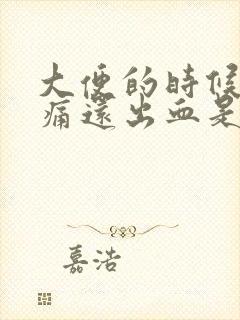 大便的時候
痛還出血是
嘉浩